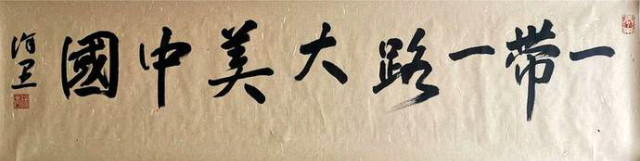 一帶一路大美中國